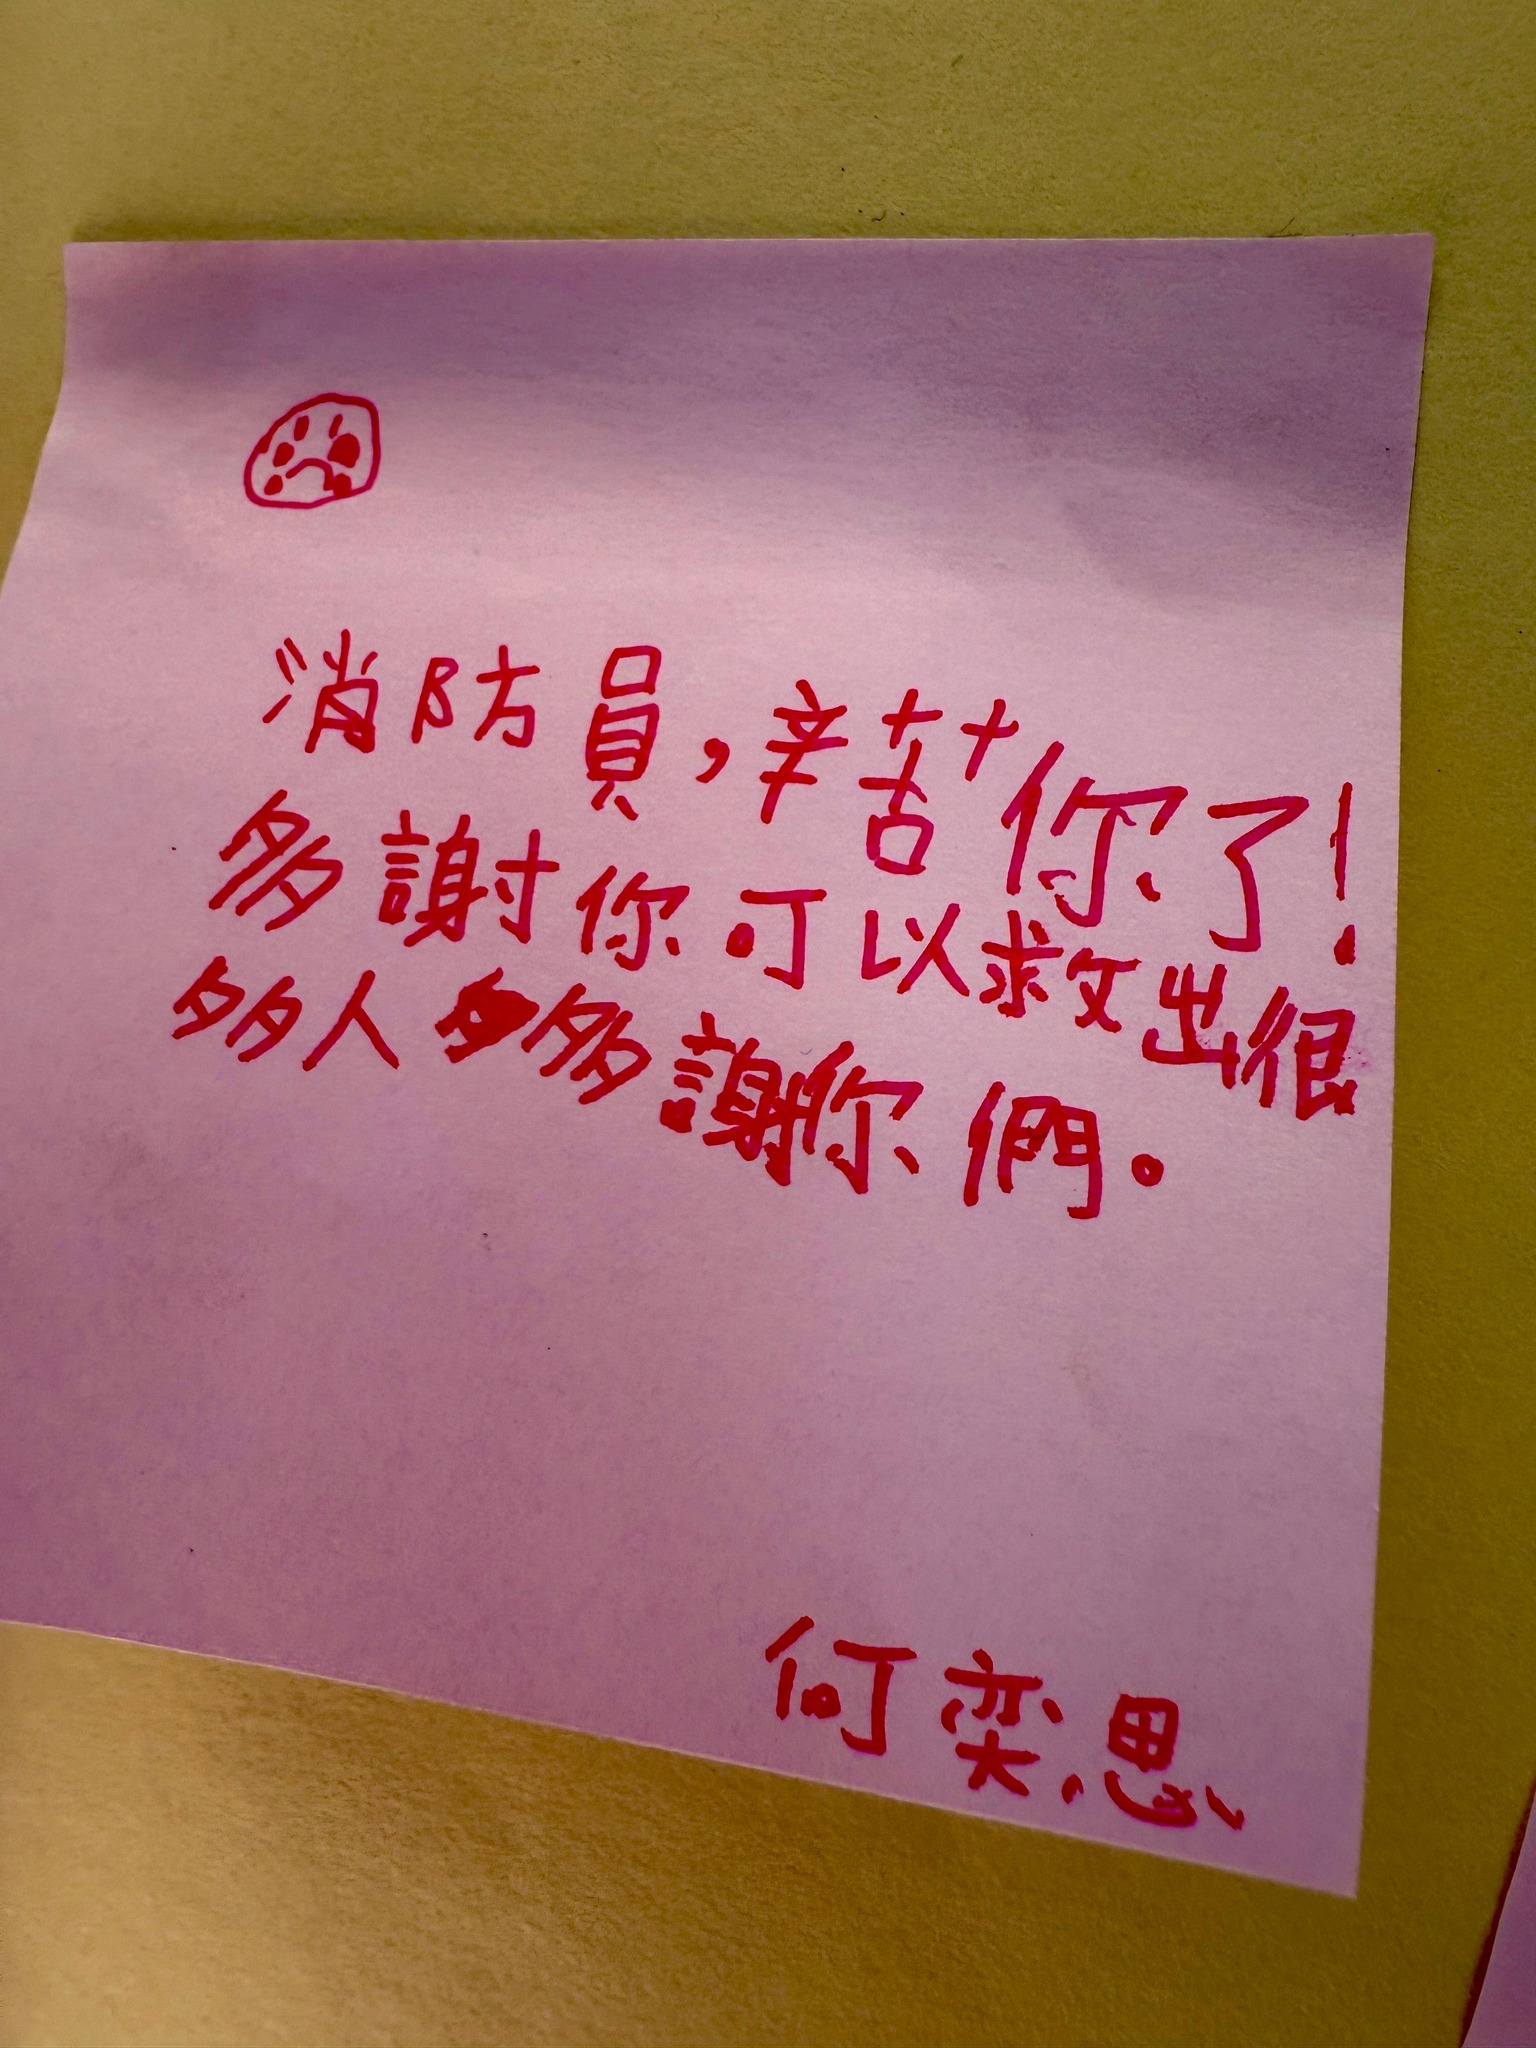 消防員,辛苦你了!
多謝你可以救出很
多人多多謝你們。
何奕思